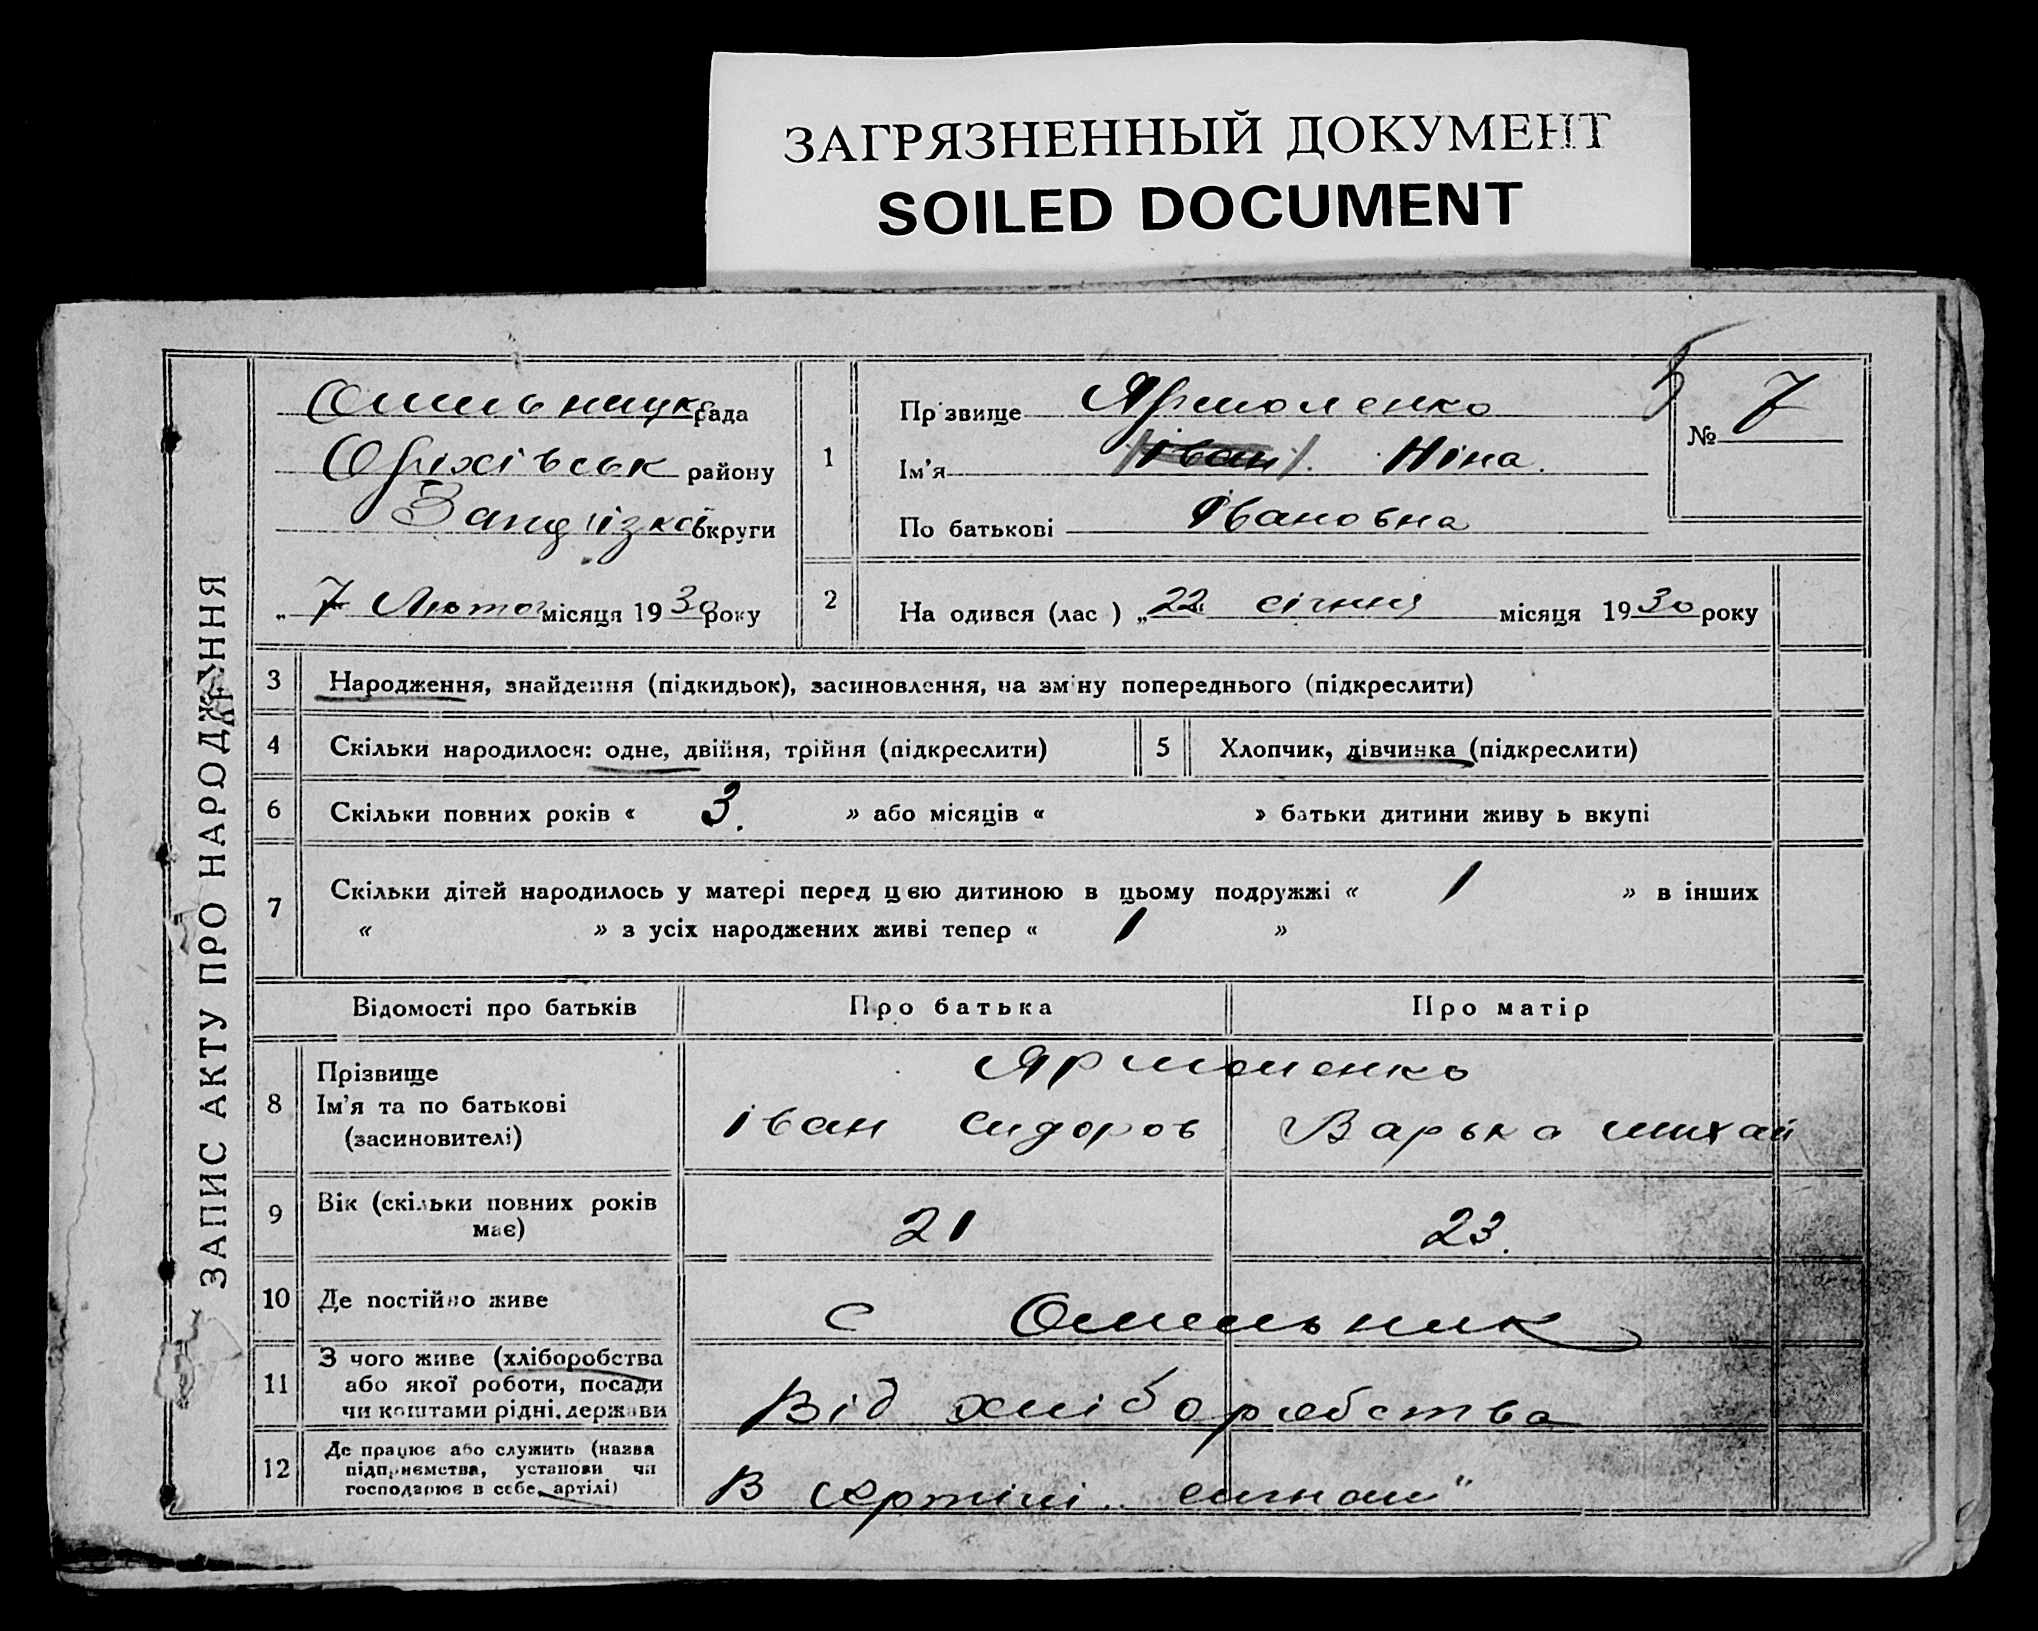 ЗАГРЯЗНЕННЫЙ ДОКУМЕНТ
SOILED DOCUMENT
ЗАПИС АКТУ ПРО НАРОДЖЕННЯ
Омельницк рада
Оріхівськ району
округи
„7 Лютого місяця 1930 року
1
Прізвище Ярмоленко
Ім'я /Іван/. Ніна.
По батькові Івановна
Б
№ 7
2
На одився (лас ) „22 січння місяця 1930 року
3
Народження, знайдення (підкидьок), засиновлення, на зміну попереднього (підкреслити)
4
Скільки народилося: одне, двійня, трійня (підкреслити)
5
Хлопчик, дівчинка (підкреслити)
6
Скільки повних років « 3. » або місяців « » батьки дитини живу ь вкупі
7
Скільки дітей народилось у матері перед цею дитиною в цьому подружжі « 1 » в інших
« » з усіх народжених живі тепер « 1 »
Відомості про батьків
Про батька
Про матір
8
Прізвище
Ім'я та по батькові
(засиновителі)
Ярмоленко
Іван Сидоров
Варька михай
9
Вік (скільки повних років
має)
21
23.
10
Де постійно живе
с Омельник
11
З чого живе (хліборобства
або якої роботи, посади
чи коштами рідні, держави
Від хліборобства
12
Де працює або служить (назва
підприємства, установи чи
господарює в себе, артілі)
В Артілі „сигнал"